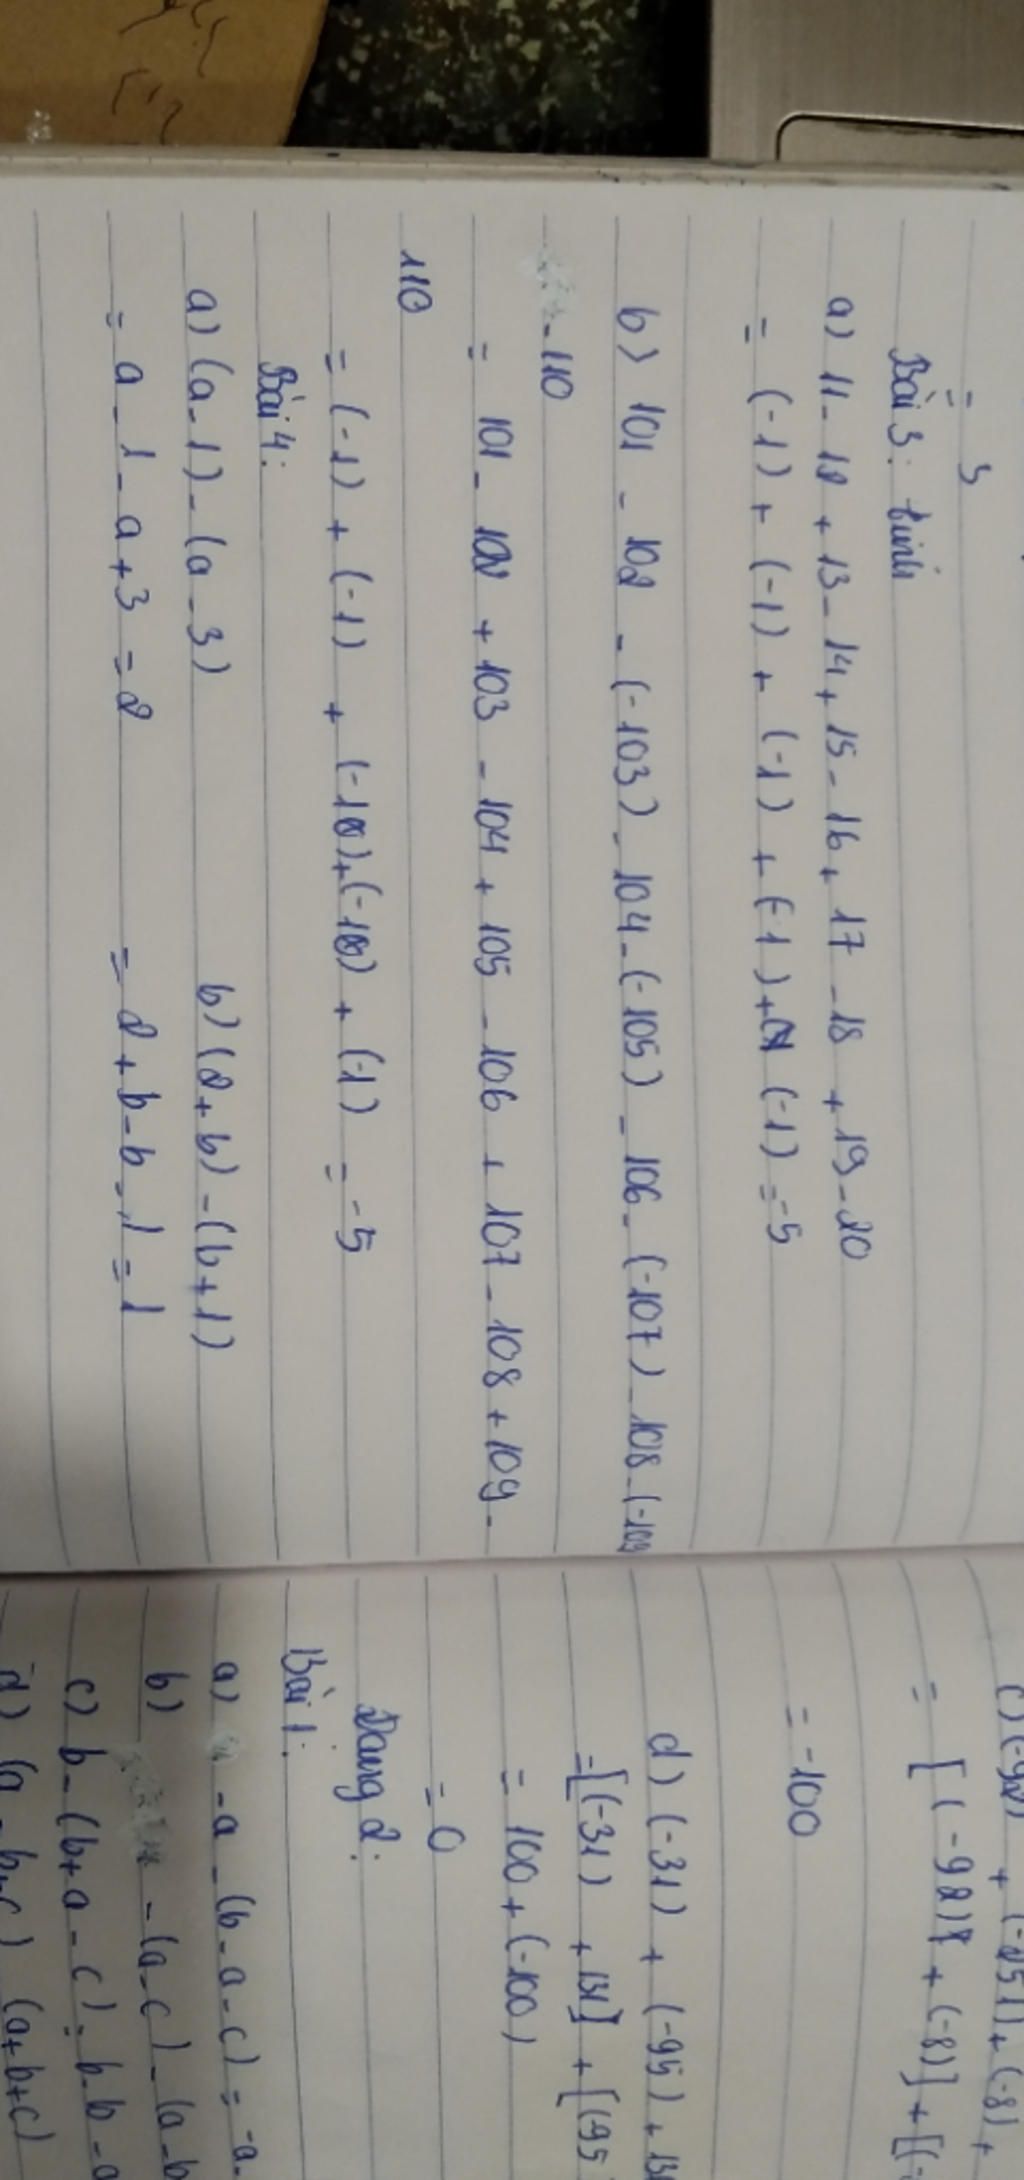 = 5
Bài 3: tính
a) 11 - 12 + 13 - 14 + 15 - 16 + 17 - 18 + 19 - 20
= (-1) + (-1) + (-1) + (-1) + (-1) = -5
b) 101 - 102 - (-103) - 104 - (-105) - 106 - (-107) - 108 - (-109
- 110
= 101 - 102 + 103 - 104 + 105 - 106 + 107 - 108 + 109 -
110
= (-1) + (-1) + (-1) + (-1) + (-1) = -5
Bài 4:
a) (a - 1) - (a - 3) b) (2 + b) - (b + 1)
= a - 1 - a + 3 = 2 = 2 + b - b - 1 = 1
c) (-92) + (-251) + (-8) +
= [(-92) + (-8)] + [(-
= -100
d) (-31) + (-95) + 131
= [(-31) + 131] + [(-95
= 100 + (-100)
= 0
Dạng 2:
Bài 1:
a) -a - (b - a - c) = -a -
b) - (a - c) - (a - b
c) b - (b + a - c) = b - b - a
d) (a - b - c) (a + b + c)